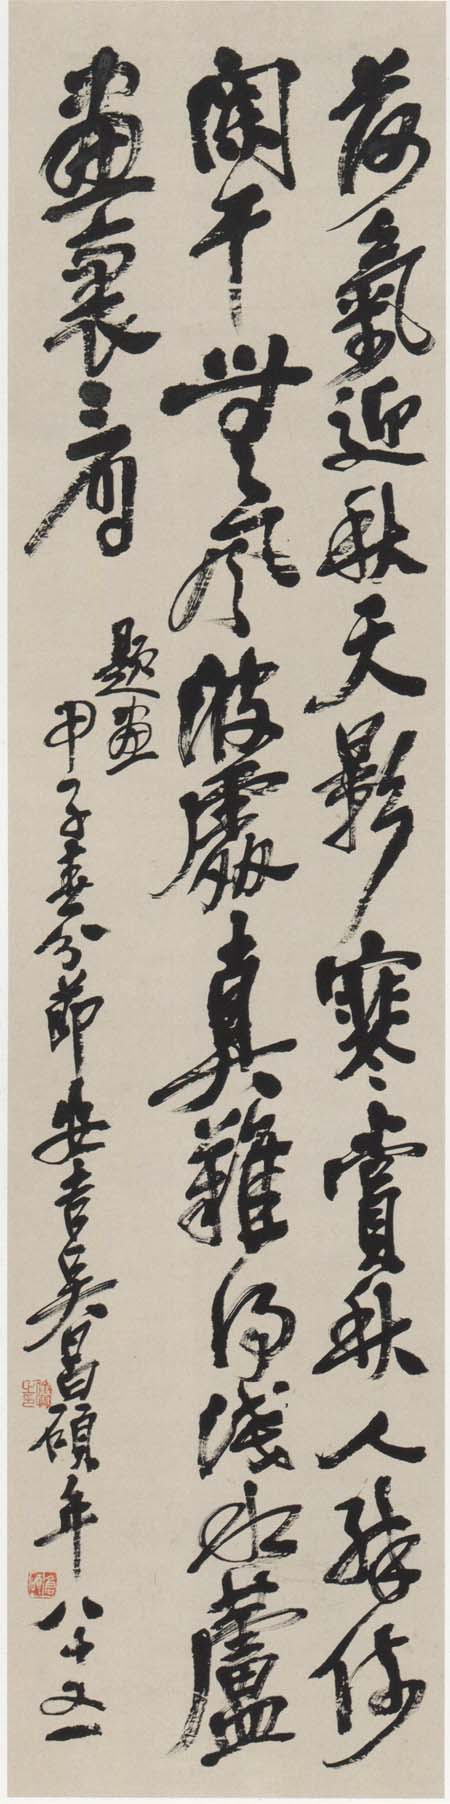 荷氣迎秋天影寒賞秋人醉倚
闌干無風波處真難得淺水蘆
畫裏看
題畫
甲子春分節安吉吳昌碩年八十又一